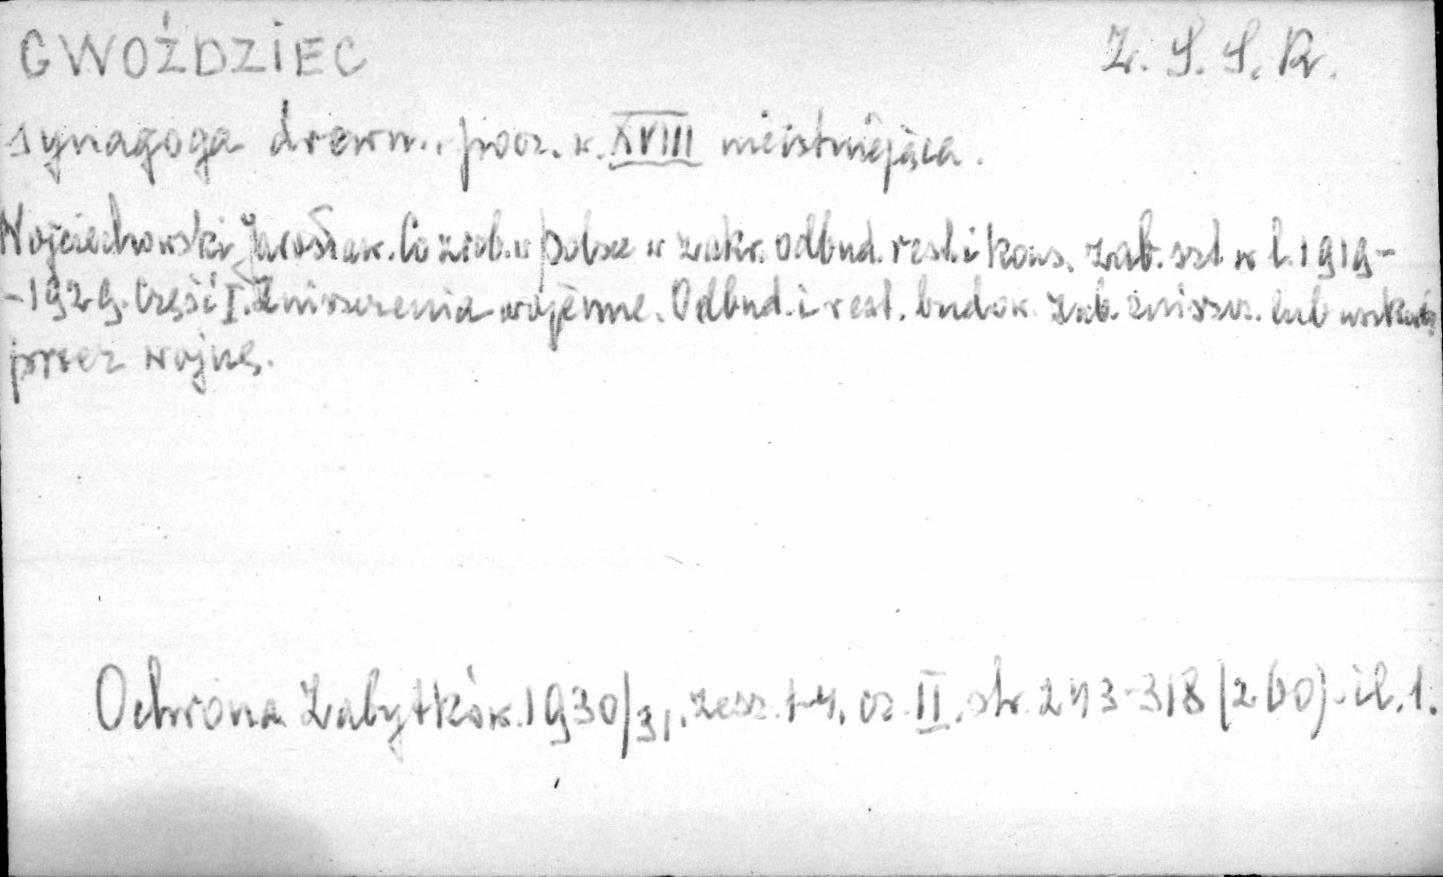 GWOŹDZIEC Z. S. S. R.
synagoga drewn., pocz. w. XVIII nieistniejąca.
Wojciechowski Jarosław. Co zrob. w Polsce w zakr. odbud. rest. i kons. zab. szt. w l. 1919-
-1929. Część I. Zniszczenia wojenne. Odbud. i rest. budow. zab. zniszcz. lub uszkodz.
przez wojnę.
Ochrona Zabytków. 1930/31, zesz. 1-4, cz. II, str. 243-318 (260). il. 1.